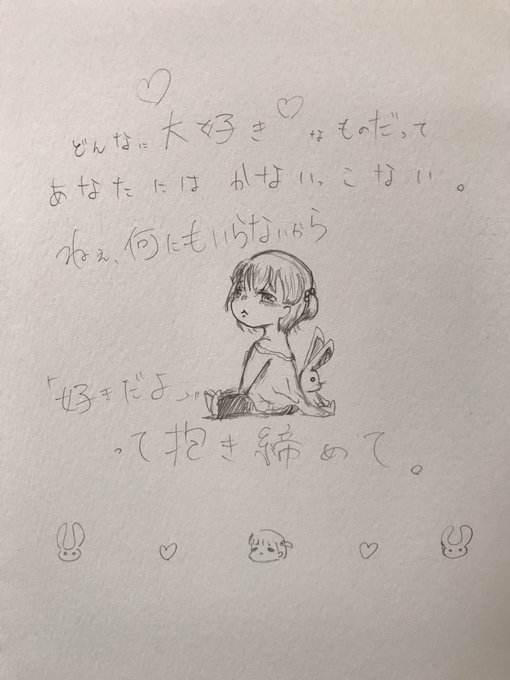 どんなに大好きなものだって
あなたにはかないっこない。
ねぇ、何にもいらないから
「好きだよ」
って抱き締めて。